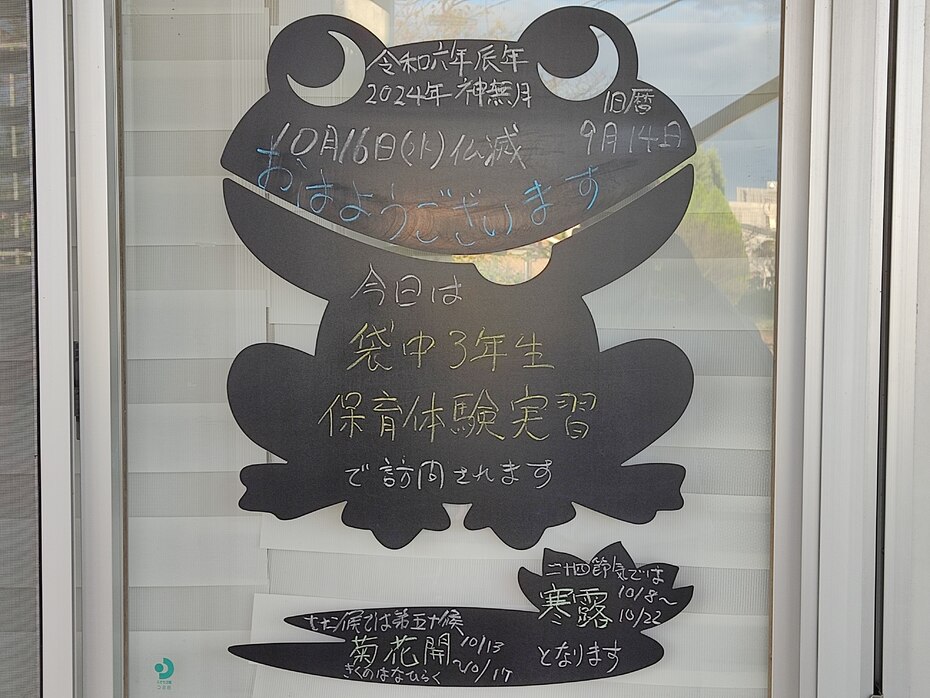 令和六年辰年
2024年 神無月
旧暦
9月14日
10月16日(水)仏滅
おはようございます
今日は
袋中3年生
保育体験実習
で訪問されます
二十四節気では
寒露 10/8~10/22
七十二候では第五十候
菊花開 10/13~10/17
きくのはなひらく
となります